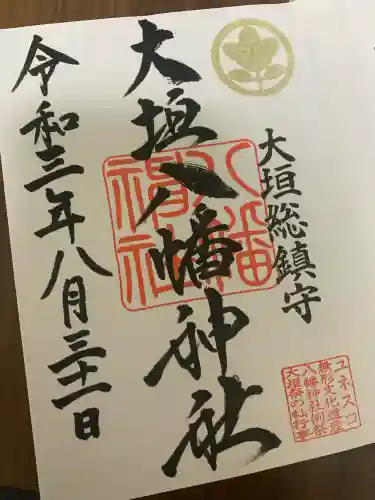 大垣総鎮守
大垣八幡神社
令和三年八月三十一日
八幡神社
ユネスコ
無形文化遺産
八幡神社例祭
大垣祭の軕行事